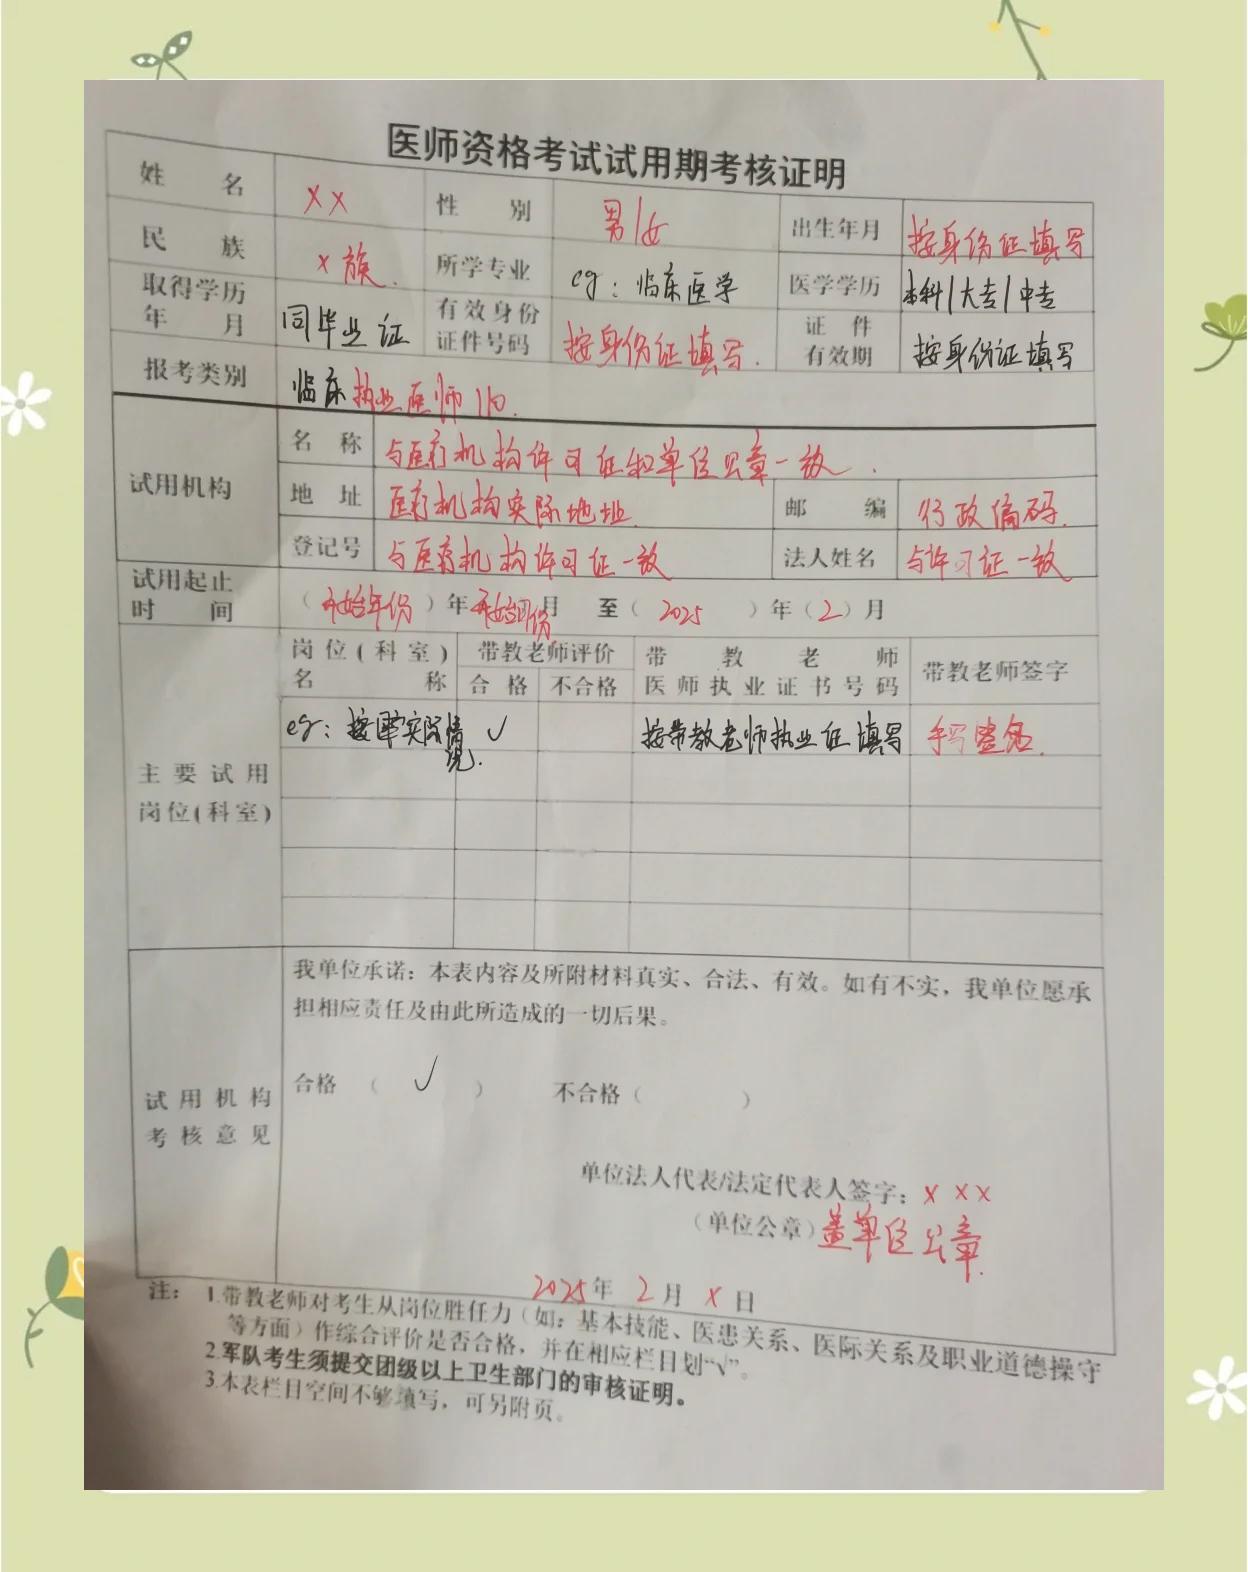 医师资格考试试用期考核证明
姓 名 XX 性 别 男/女 出生年月 按身份证填写
民 族 X族. 所学专业 eg：临床医学 医学学历 本科/大专/中专
取得学历年 月 同毕业证 有效身份证件号码 按身份证填写. 证 件有效期 按身份证填写
报考类别 临床执业医师110.
试用机构 名 称 与医疗机构许可证和单位公章一致.
地 址 医疗机构实际地址 邮 编 行政编码.
登记号 与医疗机构许可证一致 法人姓名 与许可证一致
试用起止时 间 （开始年份）年 开始月份 月 至（2025）年（2）月
主要试用岗位(科室) 岗位(科室)名 称 带教老师评价 带 教 老 师医师执业证书号码 带教老师签字
合 格 不合格
eg：按实际情况. ✓ 按带教老师执业证填写 手写签名.
试用机构考核意见
我单位承诺：本表内容及所附材料真实、合法、有效。如有不实，我单位愿承
担相应责任及由此所造成的一切后果。
合格（ ✓ ） 不合格（ ）
单位法人代表/法定代表人签字：XXX
（单位公章）盖单位公章.
2025年 2月 X日
注： 1.带教老师对考生从岗位胜任力（如：基本技能、医患关系、医际关系及职业道德操守
等方面）作综合评价是否合格，并在相应栏目划“√”。
2.军队考生须提交团级以上卫生部门的审核证明。
3.本表栏目空间不够填写，可另附页。